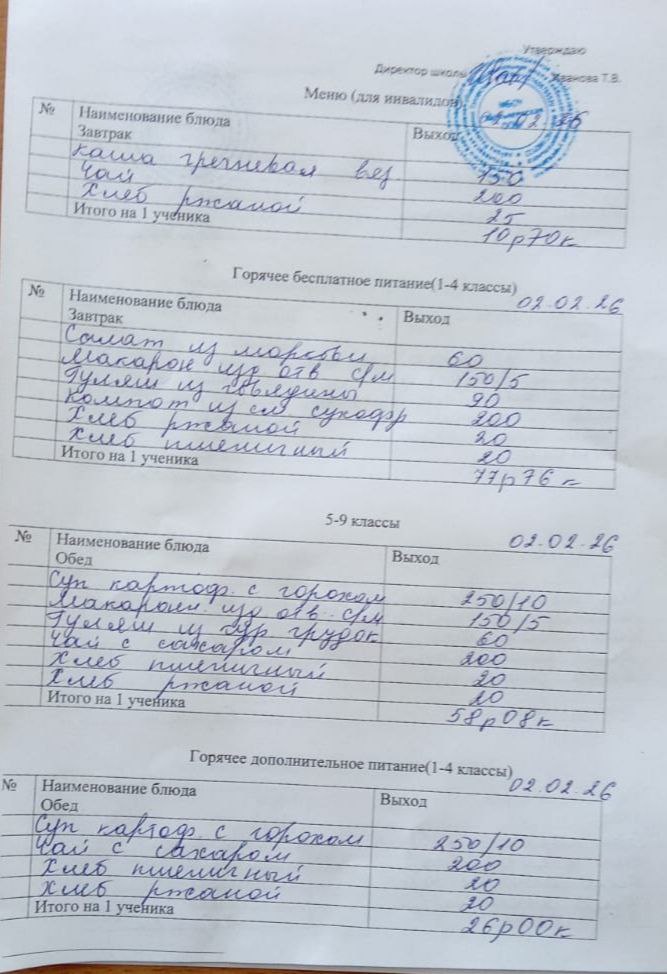 Утверждаю
Директор школы Иванова Т.В.
Меню (для инвалидов) 02.02.26
№ Наименование блюда Выход
Завтрак
каша гречневая вяз 150
Чай 200
Хлеб ржаной 25
Итого на 1 ученика 10р70к
Горячее бесплатное питание(1-4 классы) 02.02.26
№ Наименование блюда Выход
Завтрак
Салат из моркови 60
Макарон изд отв с/м 150/5
Гуляш из говядины 90
Компот из см сухофр 200
Хлеб ржаной 20
Хлеб пшеничный 20
Итого на 1 ученика 77р76к
5-9 классы 02.02.26
№ Наименование блюда Выход
Обед
Суп картоф. с горохом 250/10
Макарон изд отв с/м 150/5
Гуляш из кур грудок 60
Чай с сахаром 200
Хлеб пшеничный 20
Хлеб ржаной 20
Итого на 1 ученика 58р08к
Горячее дополнительное питание(1-4 классы) 02.02.26
№ Наименование блюда Выход
Обед
Суп картоф. с горохом 250/10
Чай с сахаром 200
Хлеб пшеничный 20
Хлеб ржаной 20
Итого на 1 ученика 26р00к